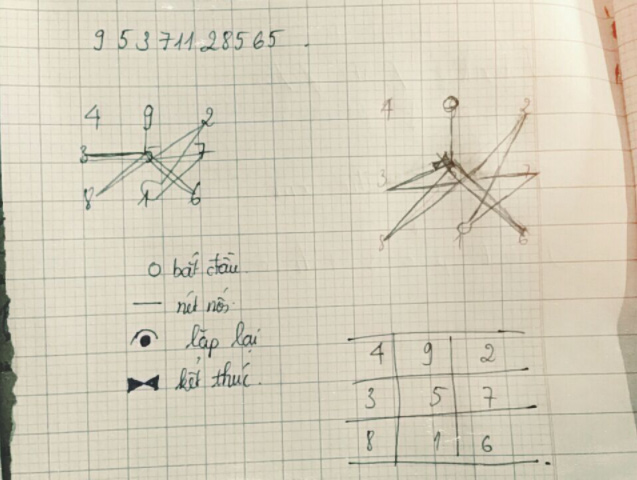 9 5 3 7 1 1 2 8 5 6 5 .
4 9 2
3 5 7
8 1 6
4 2
3 7
8 1 6
bắt đầu.
nét nối.
lặp lại
kết thúc.
4 9 2
3 5 7
8 1 6